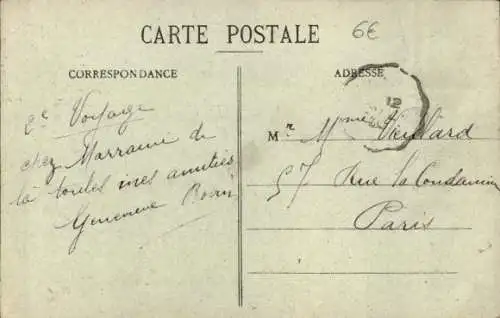 CARTE POSTALE
6€
CORRESPONDANCE
2e Voyage
chez Marraine de
là toutes mes amitiés
Geneviève
ADRESSE
12
Mr Mme Veillard
57 Rue la Condamine
Paris